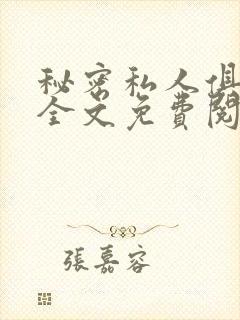 秘密私人俱
全文免費閱
張嘉容